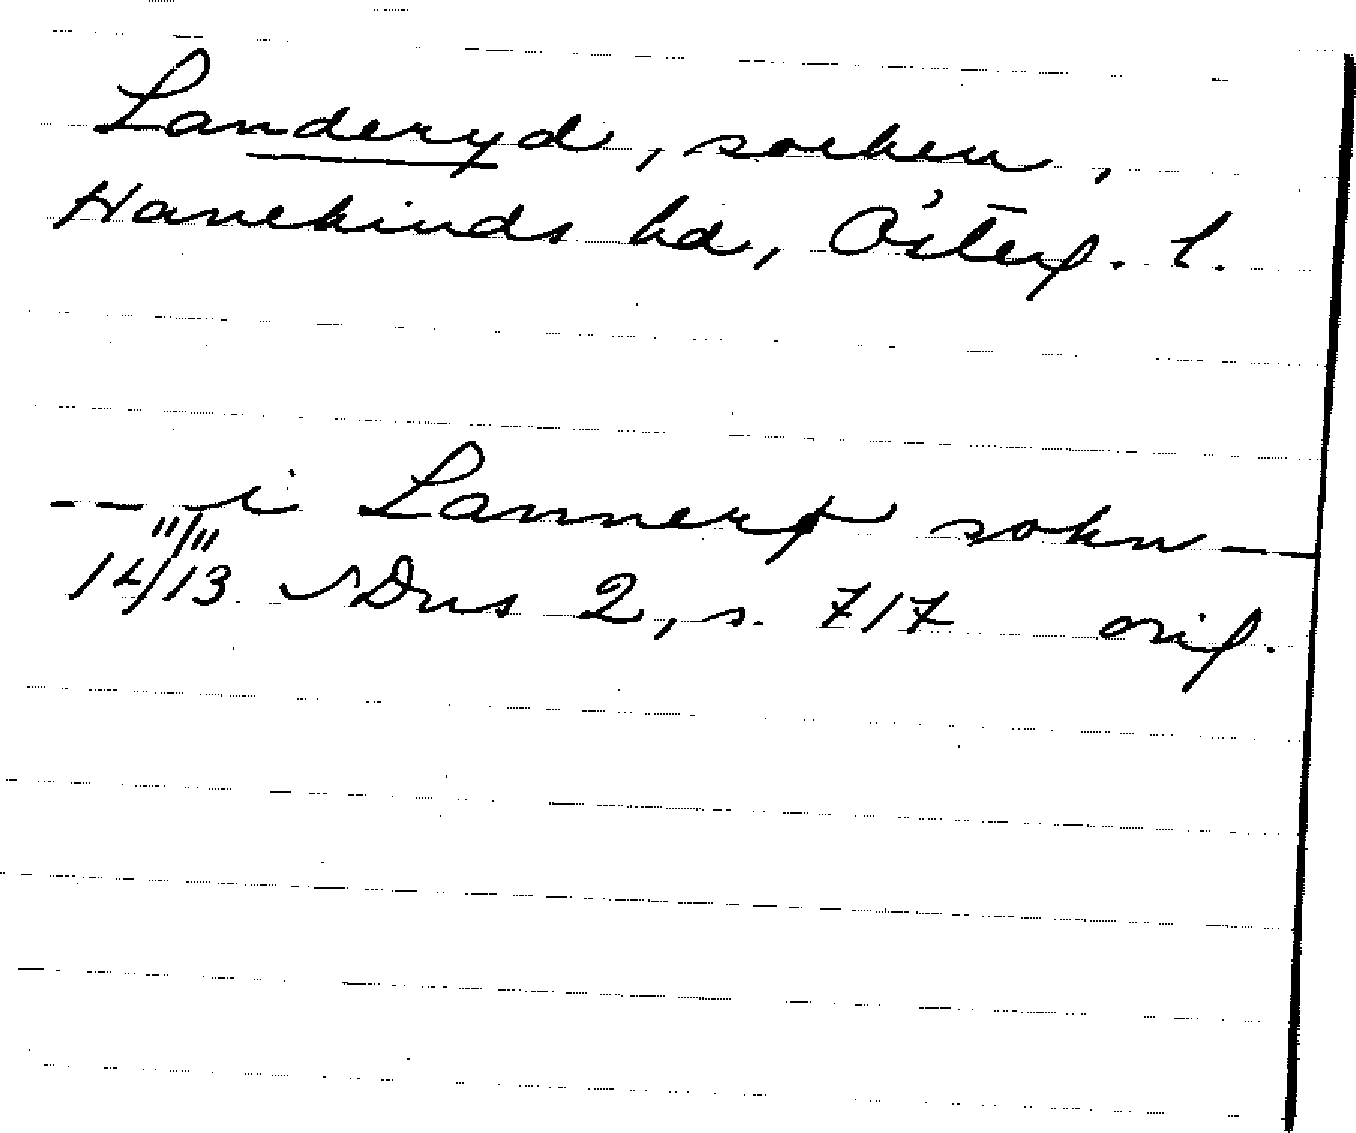 Landeryd, socken,
Hanekinds hd, Österg. l.
— — i Lannerþ sokn —
14 11/11 13 SDns 2, s. 717 orig.